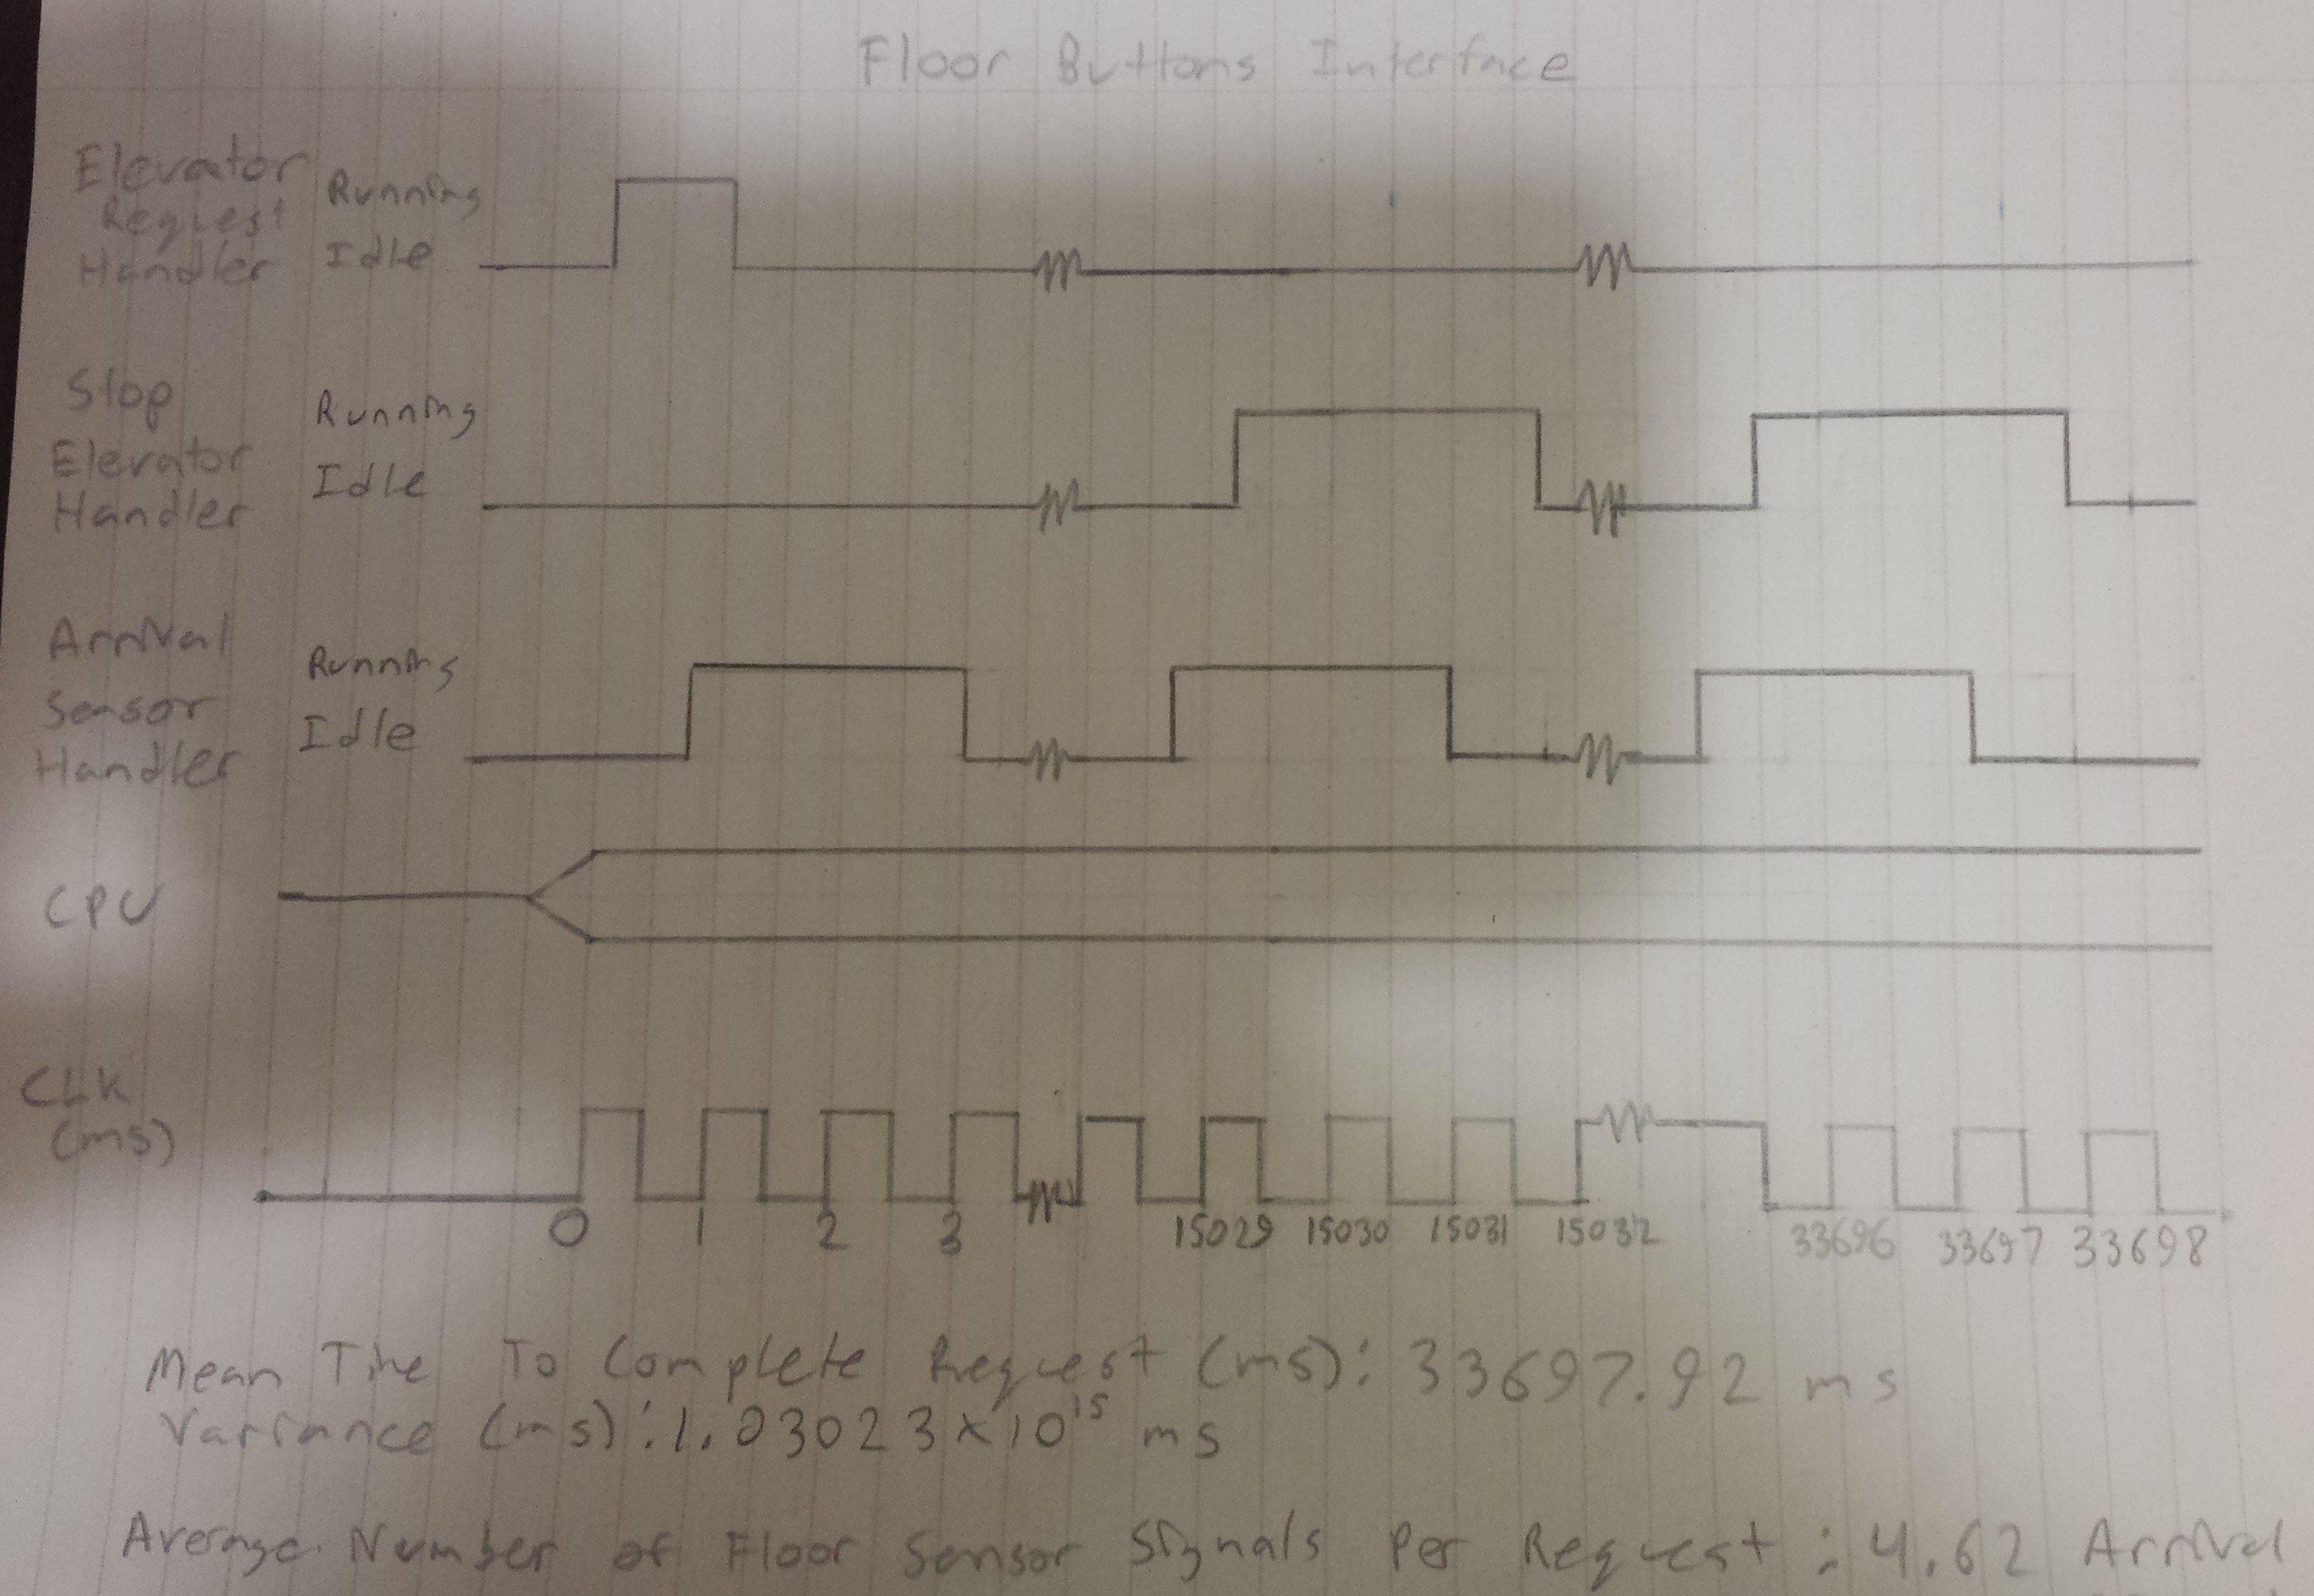 Floor Buttons Interface
Elevator
Request
Handler
Running
Idle
Stop
Elevator
Handler
Running
Idle
Arrival
Sensor
Handler
Running
Idle
CPU
CLK
(ms)
0 1 2 3 15029 15030 15031 15032 33696 33697 33698
Mean Time To Complete Request (ms): 33697.92 ms
Variance (ms): 1.03023 x 10¹⁵ ms
Average Number of Floor Sensor Signals Per Request: 4.62 Arrival